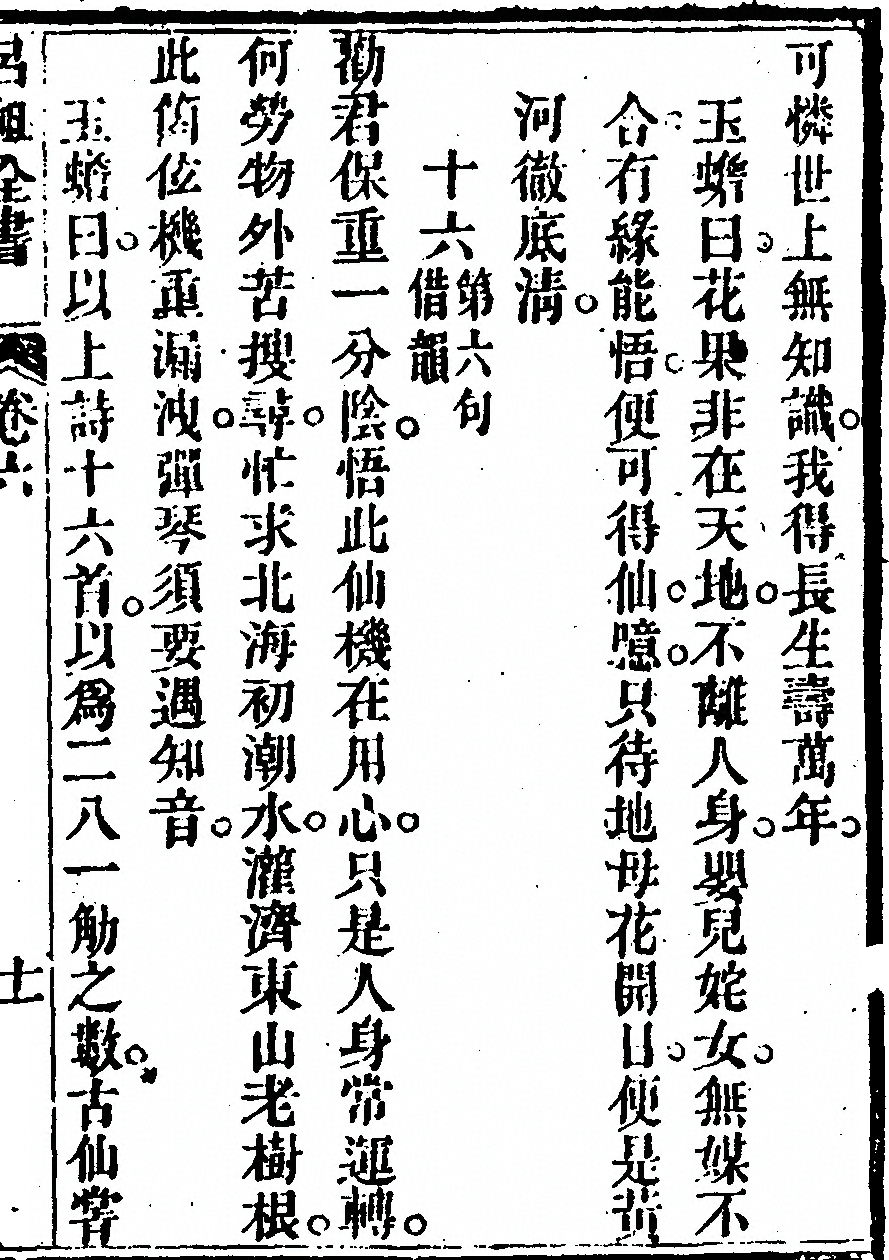 可憐世上無知識我得長生壽萬年
玉蟾曰花果非在天地不離人身嬰兒姹女無媒不
合有緣能悟便可得仙噫只待地母花開日便是黃
河徹底清
十六第六句借韻
勸君保重一分陰悟此仙機在用心只是人身常運轉
何勞物外苦搜尋忙求北海初潮水灌濟東山老樹根
此箇位機重漏洩彈琴須要遇知音
玉蟾曰以上詩十六首以為二八一觔之數古仙嘗
呂祖全書 卷六 十一